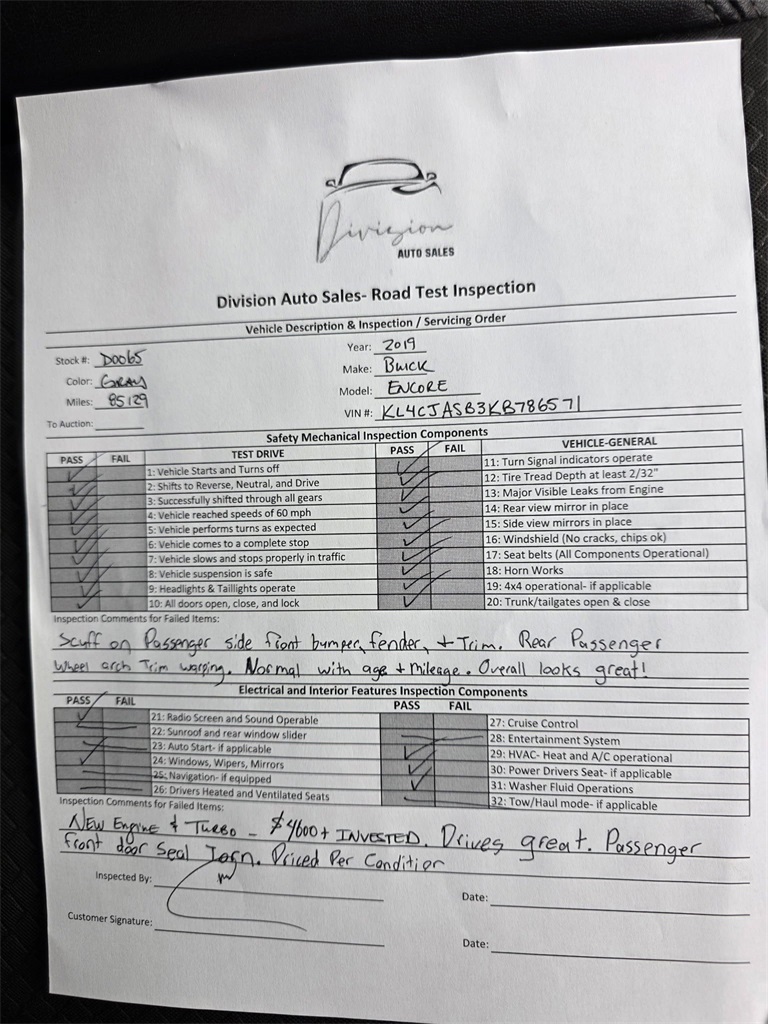 Division
AUTO SALES
Division Auto Sales- Road Test Inspection
Vehicle Description & Inspection / Servicing Order
Stock #: D0065
Year: 2019
Color: GRAY
Make: BUICK
Miles: 85129
Model: ENCORE
To Auction:
VIN #: KL4CJASB3KB786571
Safety Mechanical Inspection Components
PASS FAIL TEST DRIVE PASS FAIL VEHICLE-GENERAL
1: Vehicle Starts and Turns off 11: Turn Signal indicators operate
2: Shifts to Reverse, Neutral, and Drive 12: Tire Tread Depth at least 2/32"
3: Successfully shifted through all gears 13: Major Visible Leaks from Engine
4: Vehicle reached speeds of 60 mph 14: Rear view mirror in place
5: Vehicle performs turns as expected 15: Side view mirrors in place
6: Vehicle comes to a complete stop 16: Windshield (No cracks, chips ok)
7: Vehicle slows and stops properly in traffic 17: Seat belts (All Components Operational)
8: Vehicle suspension is safe 18: Horn Works
9: Headlights & Taillights operate 19: 4x4 operational- if applicable
10: All doors open, close, and lock 20: Trunk/tailgates open & close
Inspection Comments for Failed Items:
Scuff on Passenger side front bumper, fender, + Trim. Rear Passenger
wheel arch Trim warping. Normal with age + mileage. Overall looks great!
Electrical and Interior Features Inspection Components
PASS FAIL PASS FAIL
21: Radio Screen and Sound Operable 27: Cruise Control
22: Sunroof and rear window slider 28: Entertainment System
23: Auto Start- if applicable 29: HVAC- Heat and A/C operational
24: Windows, Wipers, Mirrors 30: Power Drivers Seat- if applicable
25: Navigation- if equipped 31: Washer Fluid Operations
26: Drivers Heated and Ventilated Seats 32: Tow/Haul mode- if applicable
Inspection Comments for Failed Items:
NEW ENGINE & TURBO - $4600+ INVESTED. Drives great. Passenger
front door seal Torn. Priced Per Condition
Inspected By:
Date:
Customer Signature:
Date: